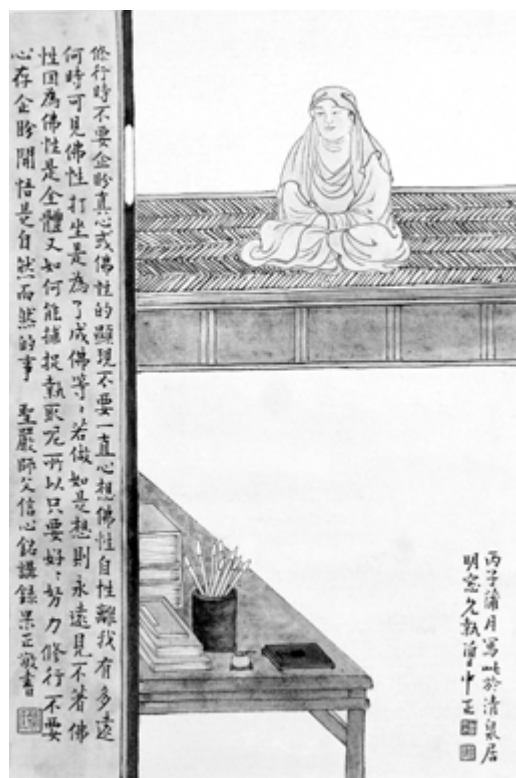 修行時不要企盼真心或佛性的顯現不要一直心想佛性自性離我有多遠
何時可見佛性打坐是為了成佛等、若做如是想則永遠見不著佛
性因為佛性是全體又如何能捕捉執取呢所以只要好、努力修行不要
心存企盼開悟是自然而然的事 聖嚴師父信心銘講錄果正敬書
丙子蒲月寫此於清泉居
明窓 曾中正